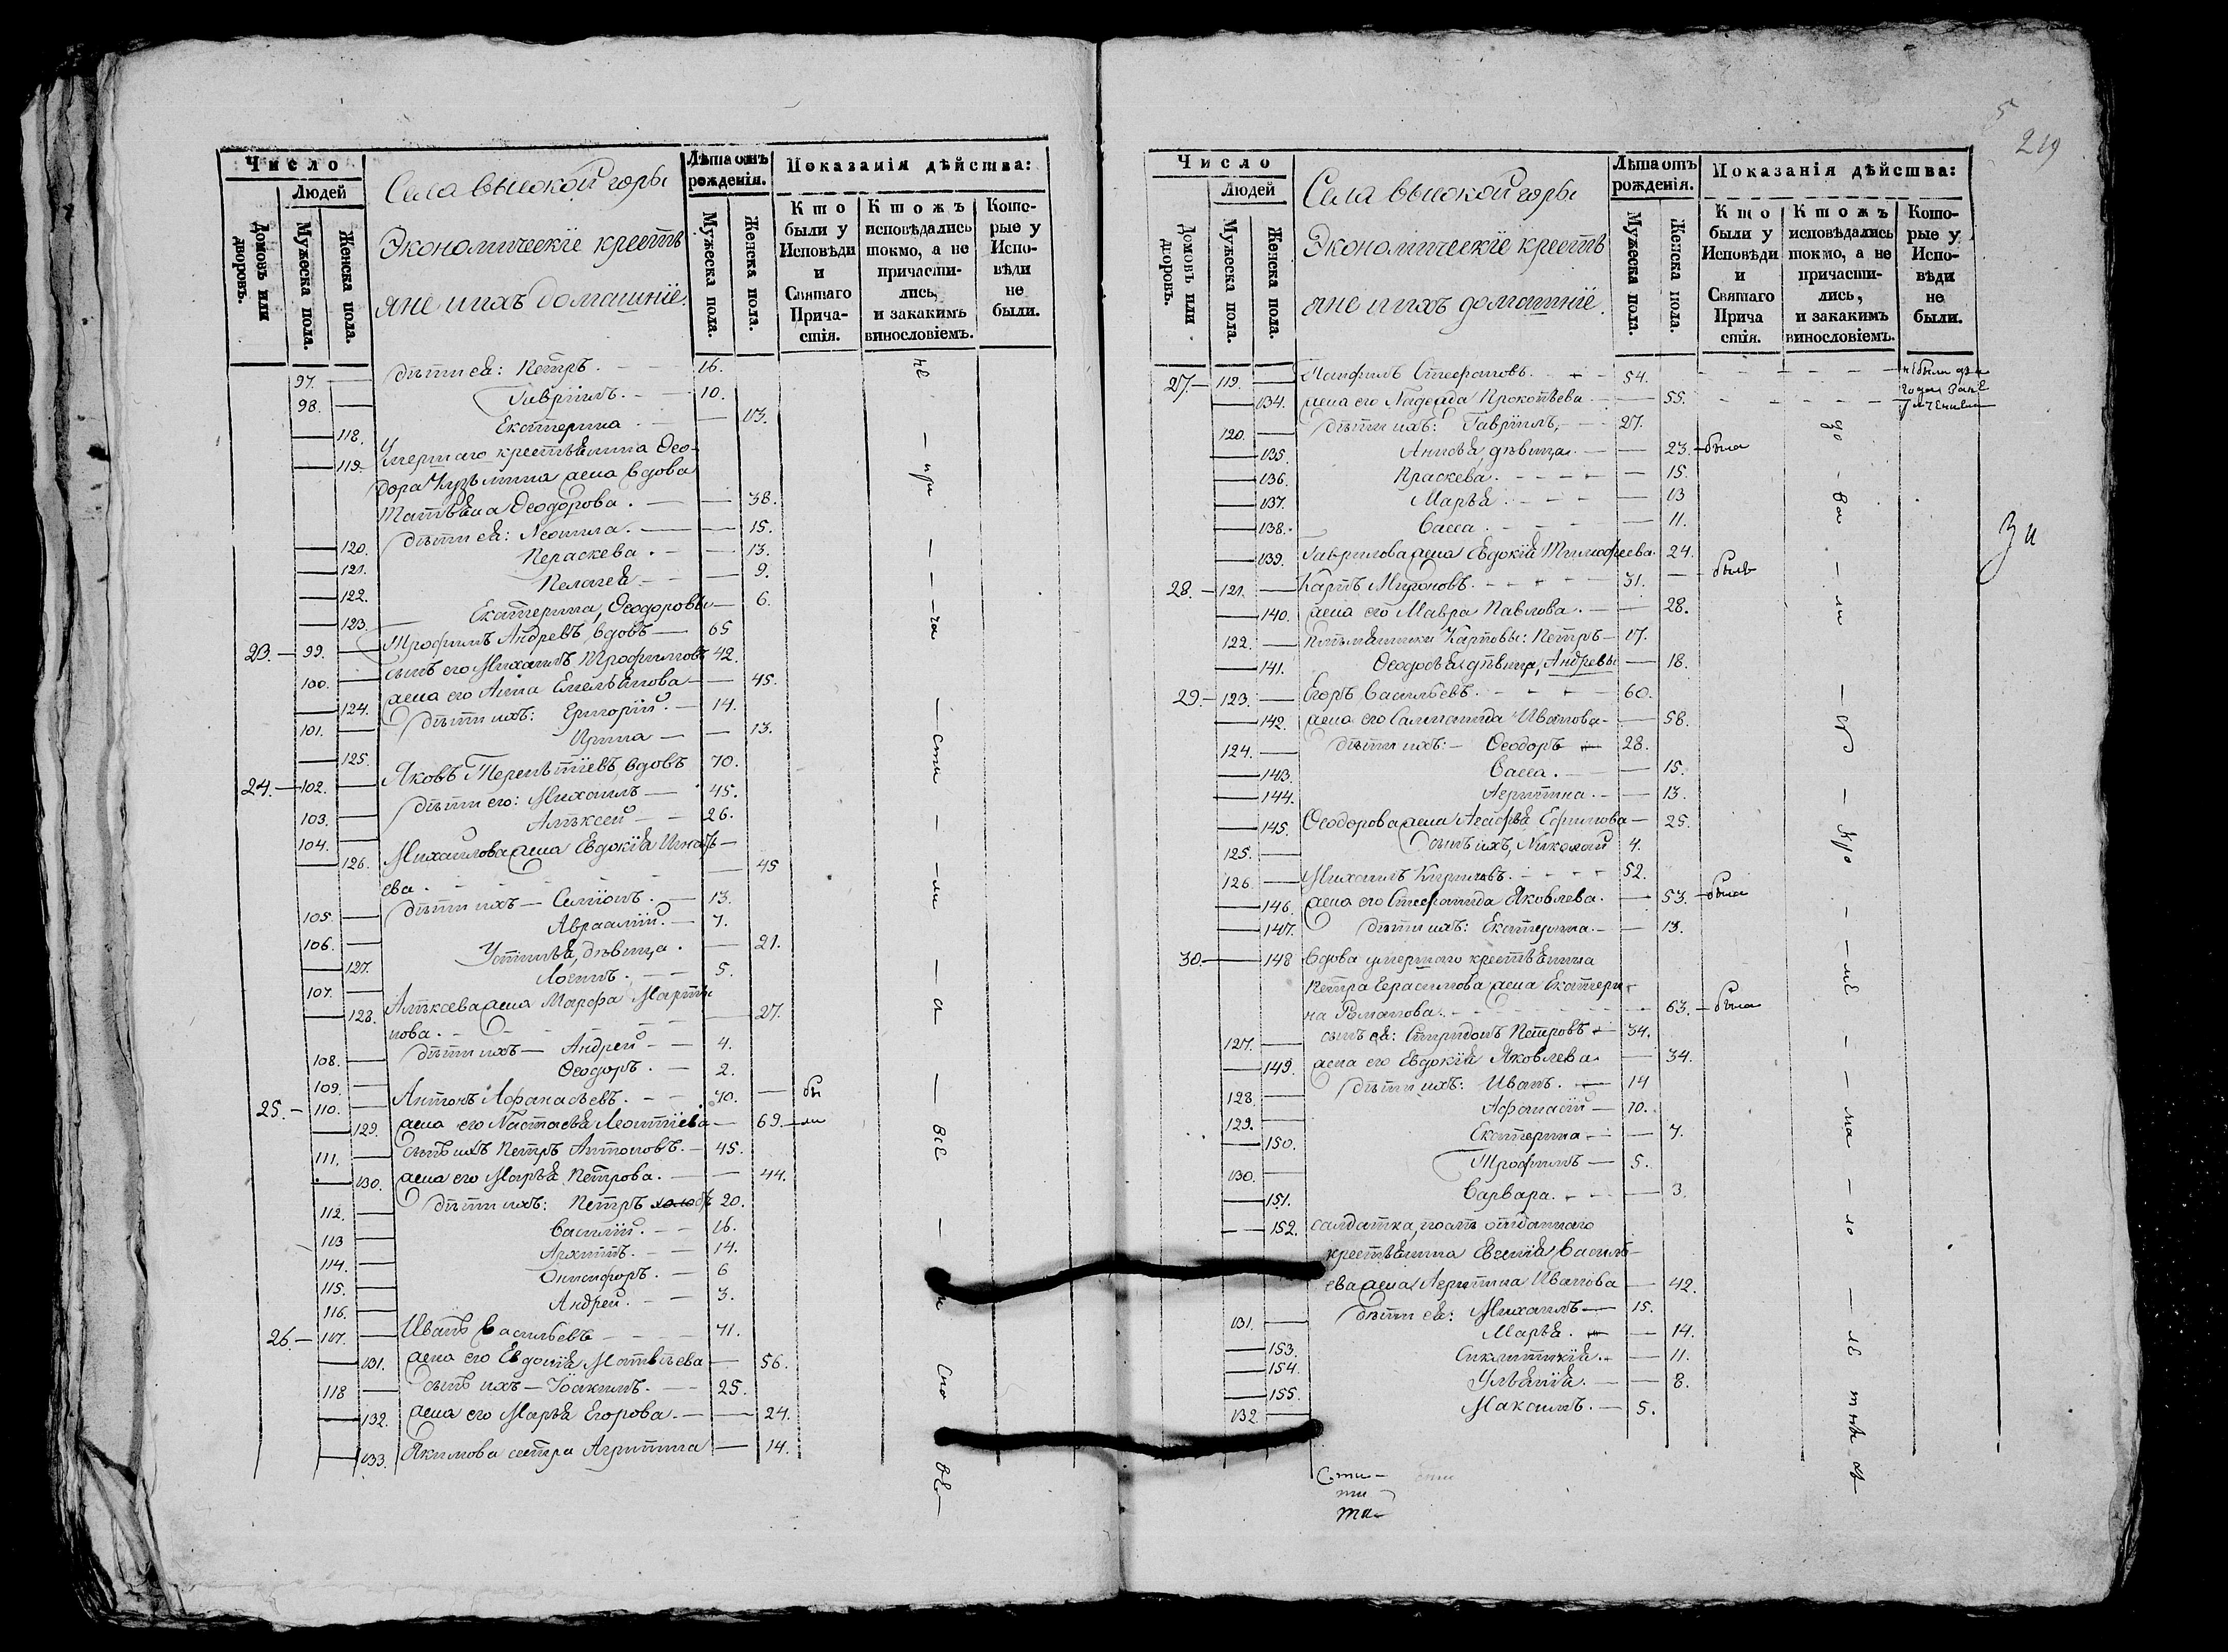 Число
Людей
Домовъ или дворовъ.
Мужеска пола.
Женска пола.
Села Высокой горы
Экономическіе кресть
яне и ихъ домашніе.
Лѣта отъ рожденія.
Мужеска пола.
Женска пола.
Показанія дѣйства:
Кто были у Исповѣди и Святаго Причастія.
Ктожъ исповѣдались токмо, а не причастились, и закакимъ винословіемъ.
Которые у Исповѣди не были.
97. — дѣти еѧ: Петръ. 16.
98. — Гавріилъ. — 10.
— 118. Екатерина — 13.
— 119. Умершаго крестьѧнина Ѳео-
дора Кузьмина жена вдова
Татьѧна Ѳеодорова. — 38.
— 120. дѣти еѧ: Неонила. — 15.
— 121. Параскева. — 13.
— 122. Пелагеѧ — 9.
— 123. Екатерина, Ѳеодоровы — 6.
23. — 99. — Трофимъ Андревъ, вдовъ — 65
100. — сынъ его Михаилъ Трофимовъ 42.
— 124. жена его Анна Емельѧнова — 45.
101. — дѣти ихъ: Григорій. — 14.
— 125. Ирина — 13.
24. — 102. — Яковъ Терентіевъ, вдовъ 70.
103. — дѣти его: Михаилъ — 45.
104. — Алѣксей — 26.
— 126. Михаилова жена Евдокіѧ Игнать-
ева. — 45
105. — дѣти ихъ — Симіонъ. — 13.
106. — Авраамій. — 7.
— 127. Устиньѧ, дѣвица. — 21.
107. — Логинъ. — 5.
— 128. Алѣксева жена Марфа Марты
нова. — 27.
108. — дѣти ихъ — Андрей — 4.
109. — Ѳеодоръ. — 2.
25. — 110. — Антонъ Афанасьевъ. — 70. — бы
— 129. жена его Настасьѧ Леонтіева — 69. — ли
111. — сынъ ихъ Петръ Антоновъ. — 45.
— 130. жена его Марьѧ Петрова. — 44.
112. — дѣти ихъ: Петръ 20.
113 — Василій. — 16.
114. — Архипъ. — 14.
115. — Онисифоръ. — 6
116. — Андрей. — 3.
26. — 117. — Иванъ Васильевъ — 71.
— 131. жена его Евдокіѧ Матвѣева — 56.
118 — сынъ ихъ — Іоакимъ. — 25.
— 132. жена его Марьѧ Егорова. — 24.
— 133. Якимова сестра Агрипина — 14.
не — при — ча — сти — ли — а — все — и спо ве
5
219
Число
Людей
Домовъ или дворовъ.
Мужеска пола.
Женска пола.
Села Высокой горы
Экономическіе кресть
яне и ихъ домашніе.
Лѣта отъ рожденія.
Мужеска пола.
Женска пола.
Показанія дѣйства:
Кто были у Исповѣди и Святаго Прича стія.
Ктожъ исповѣдались токмо, а не причастились, и закакимъ винословіемъ.
Которые у Исповѣди не были.
27. — 119. — Панфилъ Стефановъ. — 54. не были два
— 134. жена его Надежда Прокопьева — 55. года
120. — дѣти ихъ: Гавріилъ, — 27.
— 135. Анисьѧ, дѣвица. — 23. — была
— 136. Праскева. — 15.
— 137. Марьѧ — 13
— 138. Васса. — 11.
— 139. Гаврилова жена Евдокіѧ Тимофеева. 24.
28. — 121. — Карпъ Мироновъ. — 31. — были
— 140. жена его Мавра Павлова. — 28.
122. — Карповы: Петръ — 17.
— 141. Ѳеодосьѧ дѣвица, Андревы — 18.
29. — 123. — Егоръ Васильевъ. — 60.
— 142. жена его Саламанида Иванова — 58.
124. — дѣти ихъ: — Ѳеодоръ — 28.
— 143. Васса. — 15.
— 144. Агрипина. — 13.
— 145. Ѳеодорова жена — 25.
125. — сынъ ихъ, Николай 4.
126. — Михаилъ Кириловъ. — 52.
— 146. жена его Стефанида Яковлева. — 53. — была
— 147. дѣти ихъ: Екатерина. — 13.
30. — 148 вдова умершаго крестьѧнина
Петра Герасимова жена Екатери-
на Романова. — 63. — была
127. — сынъ еѧ: Спиридонъ Петровъ — 34.
— 149. жена его Евдокіѧ Яковлева. — 34.
128. — дѣти ихъ: Иванъ. — 14
129. — Афонасій — 10.
— 150. Екатерина — 7.
130. — Трофимъ — 5.
— 151. Варвара. — 3.
— 152. салдатка, отданнаго
крестьѧнина Евсевіѧ Василь-
ева жена Агрипина Иванова — 42.
131. — дѣти еѧ: Михаилъ — 15.
— 153. Марьѧ. — 14.
— 154. Сиклитикіѧ. — 11.
— 155. Ульѧніѧ. — 8.
132. — Максимъ. — 5.
до — ва — ли — его — кро — ме — ма — ло — ле тнѣ